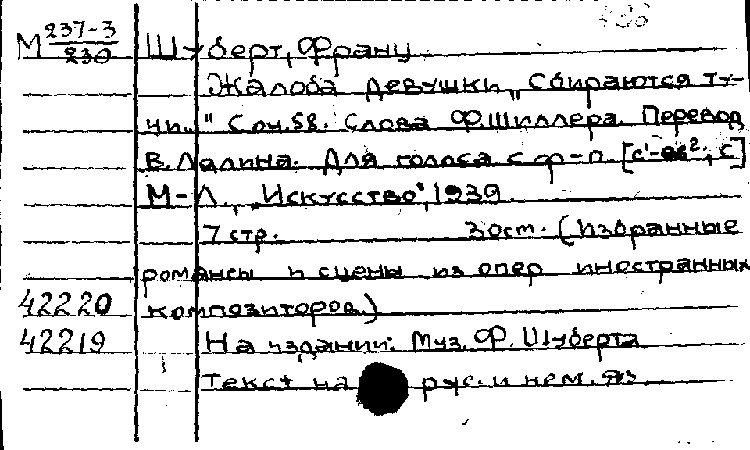 М 237-3/230 Шуберт, Франц
Жалоба девушки „Сбираются ту-
чи..." Соч.58. Слова Ф.Шиллера. Перевод
В.Лалина. Для голоса с ф-п. [c'-as²; c]
М-Л., „Искусство", 1939.
7 стр. 30ст. (Избранные
романсы и сцены из опер иностранных
42220 композиторов.)
42219 На издании: Муз. Ф. Шуберта
Текст на рус. и нем. яз.